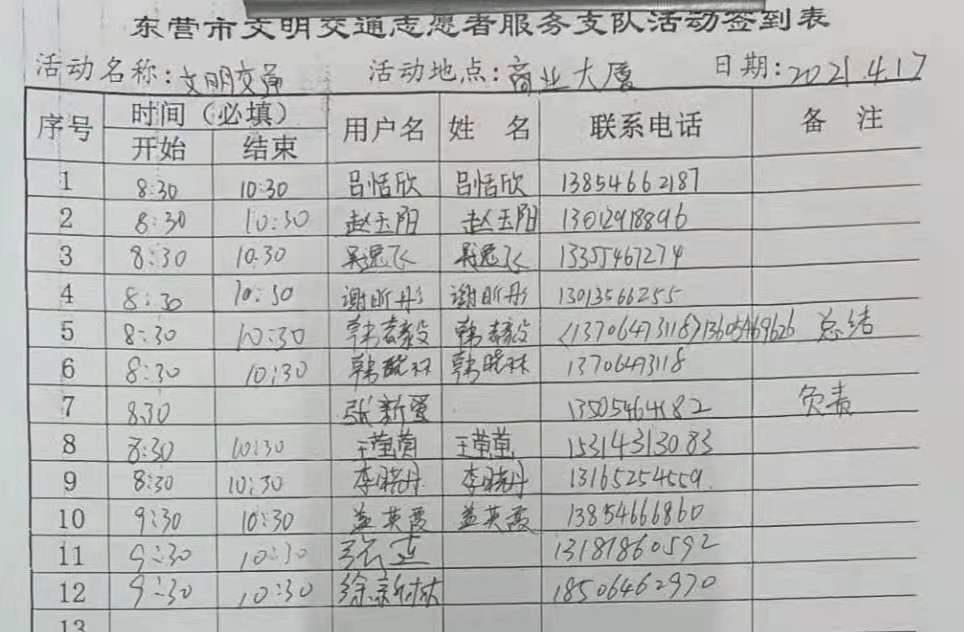 东营市文明交通志愿者服务支队活动签到表
活动名称:文明交通 活动地点:商业大厦 日期:2021.4.17
序号 时间(必填) 用户名 姓 名 联系电话 备 注
开始 结束
1 8:30 10:30 吕恬欣 吕恬欣 13854662187
2 8:30 10:30 赵玉阳 赵玉阳 13012918896
3 8:30 10.30 吴逸飞 吴逸飞 13355467274
4 8:30 10:30 谢昕彤 谢昕彤 13013566255
5 8:30 10:30 韩毅 韩毅 (13706473118)13605469626 总结
6 8:30 10:30 韩晓林 韩晓林 13706473118
7 8:30 张新爱 13505464182 负责
8 8:30 10:30 王莹莹 王莹莹 15314313083
9 8:30 10:30 李晓丹 李晓丹 13165254559
10 9:30 10:30 盖英霞 盖英霞 13854666860
11 9:30 10:30 张 13181860592
12 9:30 10:30 徐新林 18506462970
13